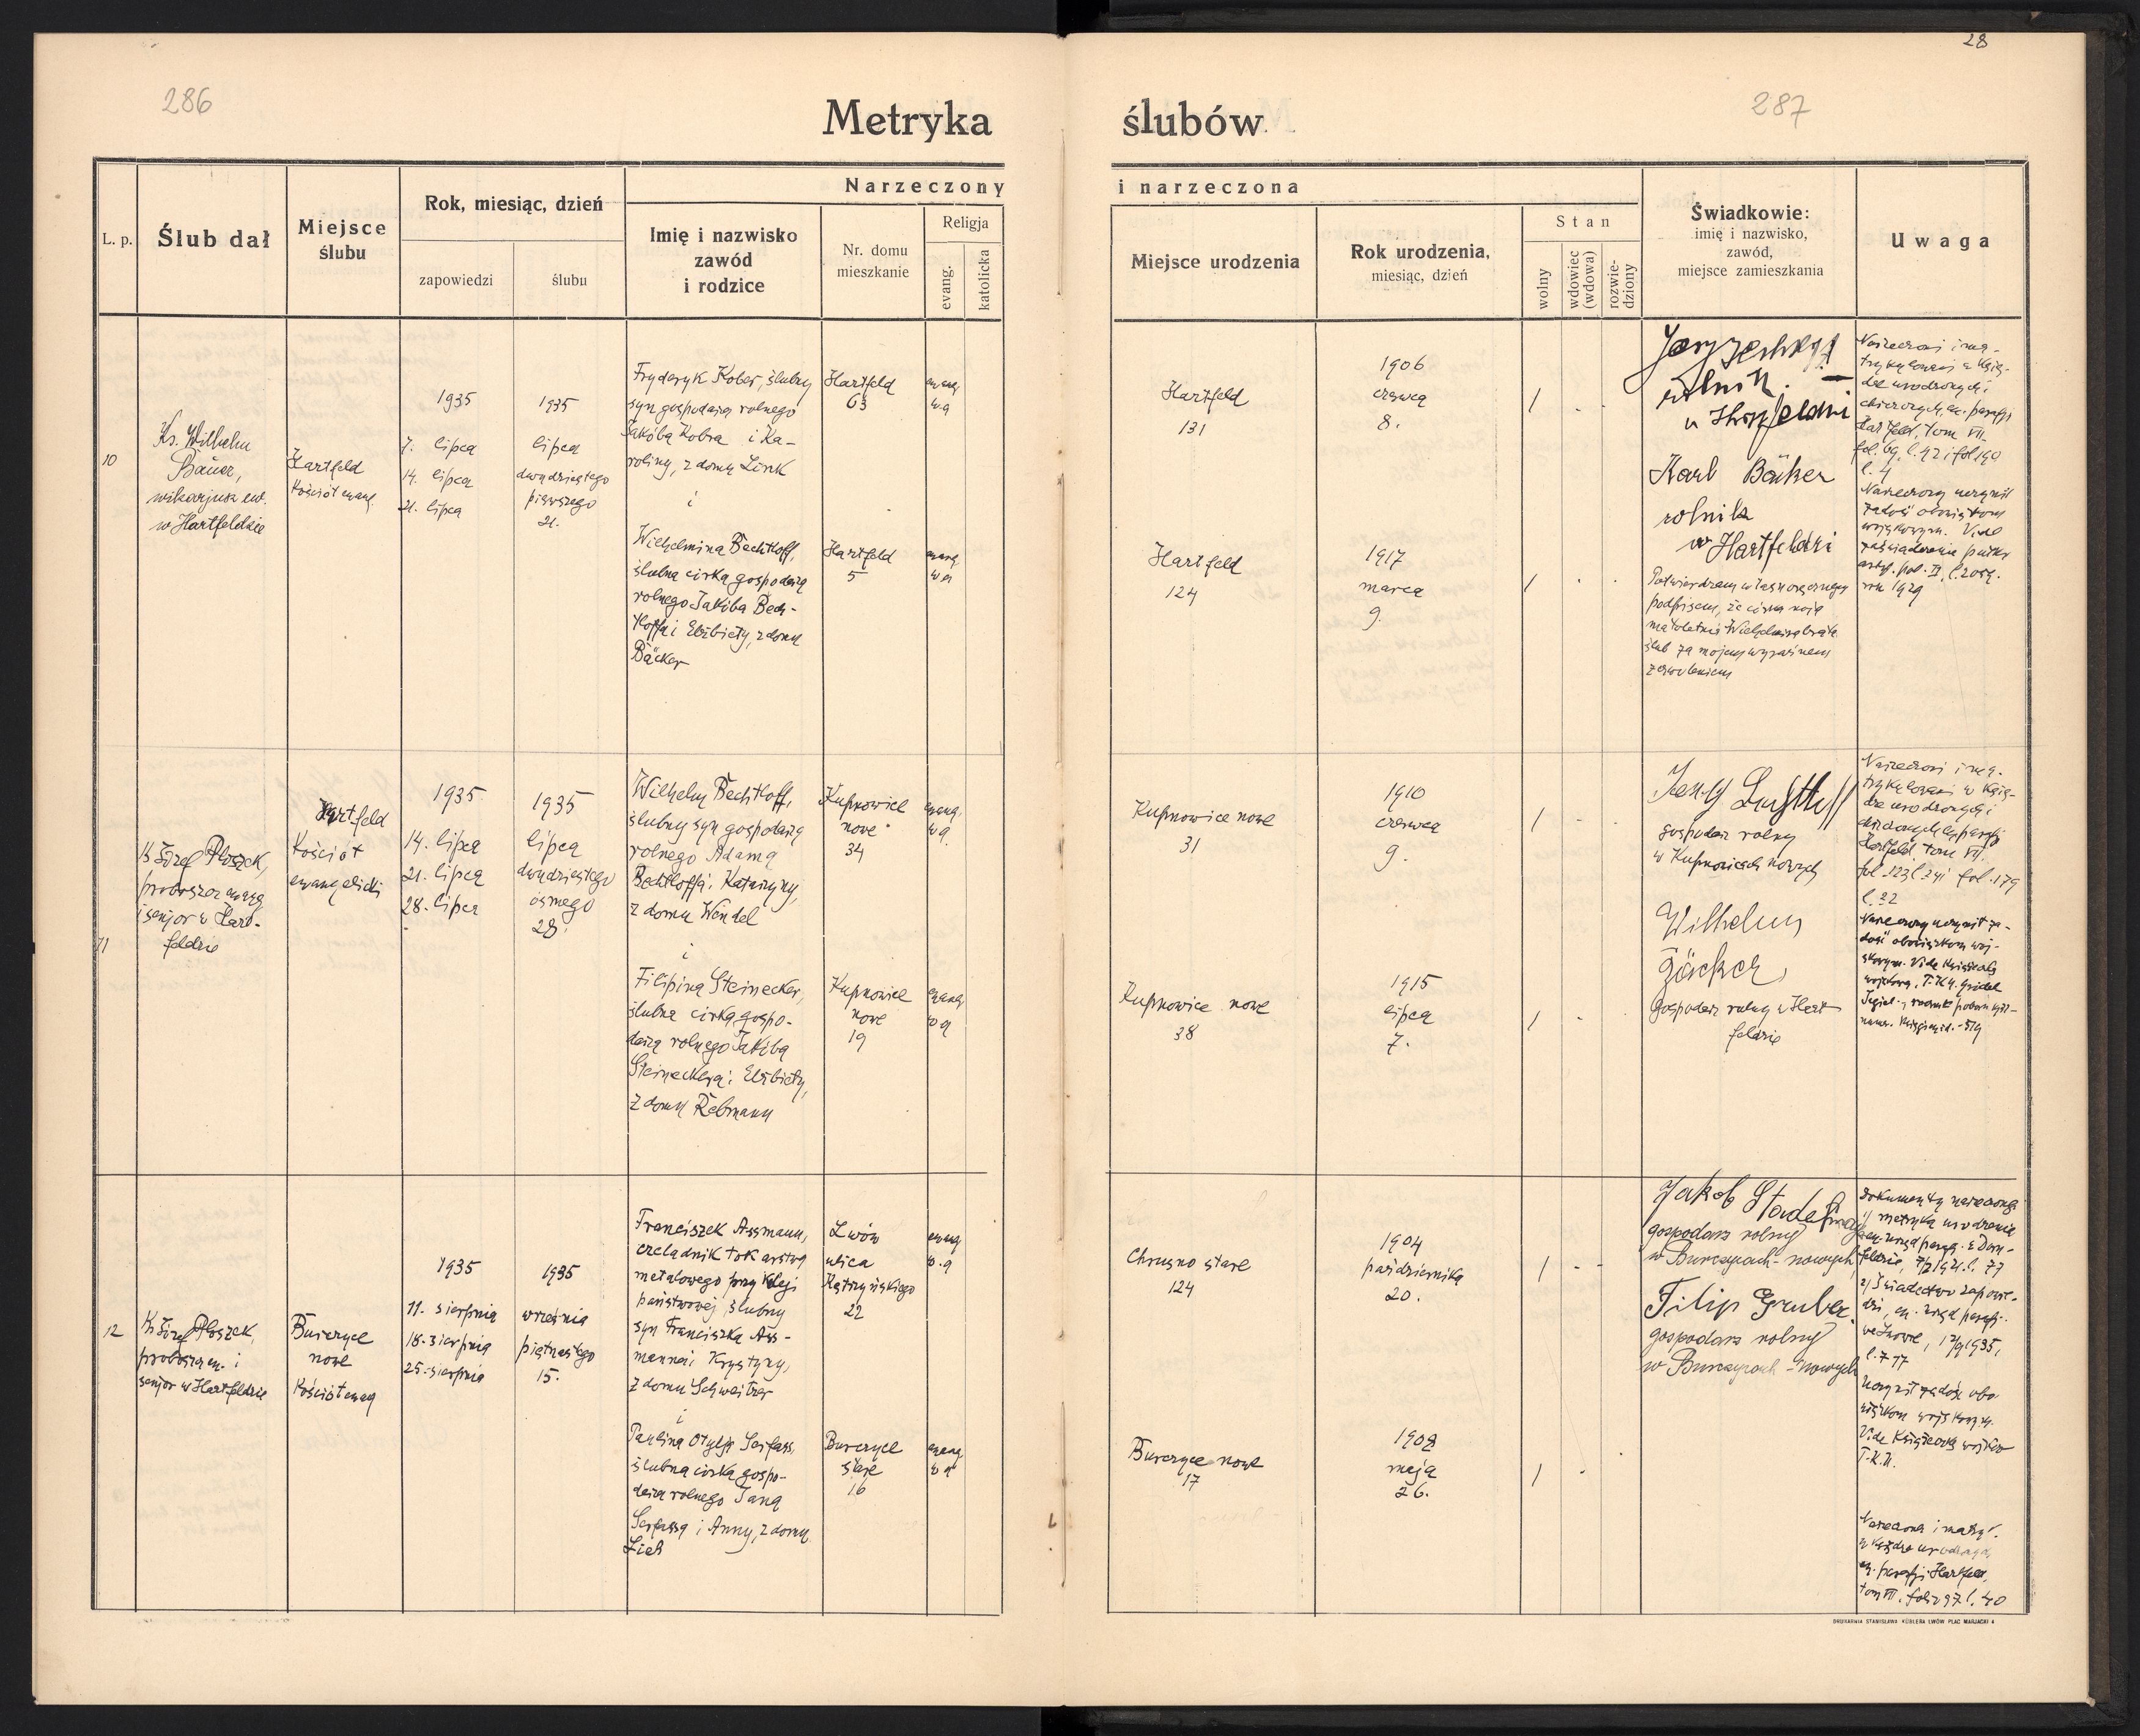 28
286
287
Metryka ślubów
L. p.
Ślub dał
Miejsce
ślubu
Rok, miesiąc, dzień
zapowiedzi
ślubu
Narzeczony i narzeczona
Imię i nazwisko
zawód
i rodzice
Nr. domu
mieszkanie
Religja
evang.
katolicka
Miejsce urodzenia
Rok urodzenia,
miesiąc, dzień
Stan
wolny
wdowiec
(wdowa)
rozwie-
dziony
Świadkowie:
imię i nazwisko,
zawód,
miejsce zamieszkania
Uwaga
10
Ks. Wilhelm
Bauer,
wikarjusz ew.
w Hartfeldzie
Hartfeld
Kościół ewang.
1935
7. lipca
14. lipca
21. lipca
1935
lipca
dwudziestego
pierwszego
21.
Fryderyk Kober, ślubny
syn gospodarza rolnego
Jakóba Kobra i Ka-
roliny, z domu Link
i
Wilhelmina Bechtloff,
ślubna córka gospodarza
rolnego Jakóba Bech-
tloffa i Elżbiety, z domu
Bäcker
Hartfeld
63
ewang.
w.a
Hartfeld
5
ewang.
w a
Hartfeld
131
1906
czerwca
8.
/ - -
Hartfeld
124
1917
marca
9.
/ - -
rolnik. —
Karl Bäcker
rolnik
w Hartfeldzi
Potwierdzam własnoręcznym
podpisem, że córka moja
małoletnia Wilhelmina brała
ślub za mojem wyraźnem
zezwoleniem
Narzeczeni ima-
trykulowani w Księ-
dze urodzonych i
chrzczonych, ew. parafji
Hartfeld, tom VII.
fol. 69, l. 42 i fol 190
l. 4
Narzeczony uczynił
zadość obowiązkom
wojskowym. Vide
zaświadczenie pułku
1929
11
Ks Józef Płoszek,
proboszcz ewang
i senjor w Hart-
feldzie
Hartfeld
Kościół
ewangelicki
1935
14. lipca
21. lipca
28. lipca
1935
lipca
dwudziestego
ósmego
28.
Wilhelm Bechtloff,
ślubny syn gospodarza
rolnego Adama
Bechtloffa i Katarzyny,
z domu Wendel
i
Filipina Steinecker,
ślubna córka gospo-
darza rolnego Jakóba
Steineckera i Elżbiety,
z domu Rebmann
Kupnowice
nowe
34
ewang.
w a.
Kupnowice
nowe
19
ewang
w a
Kupnowice nowe
31
1910
czerwca
9.
/ -
Kupnowice nowe
38
1915
lipca
7.
/ -
gospodarz rolny
w Kupnowicach nowych
Wilhelm
gospodarz rolny w Hart
feldzie
Narzeczeni ima-
trykulowani w Księ-
dze urodzonych i
chrzczonych ew parafji
Hartfeld, tom VII.
fol. 123 l 24 i fol. 179
l. 32
Narzeczony uczynił za-
dość obowiązkom woj-
skowym. Vide Książeczka
wojskowa, P.K.U. Gródek
Jagiel.
12
Ks Józef Płoszek,
proboszcz ew. i
senjor w Hartfeldzie
Burczyce
nowe
Kościół ewang
1935
11. sierpnia
18. sierpnia
25. sierpnia
1935
września
piętnastego
15.
Franciszek Assmann,
czeladnik tokarstwa
metalowego przy kolei
państwowej, ślubny
syn Franciszka Ass-
manna i Krystyny,
z domu Schweitzer
i
Paulina Otylja Serfass,
ślubna córka gospo-
darza rolnego Jana
Serfassa i Anny, z domu
Lwów
ulica
Kętrzyńskiego
22
ewang
w. a
Burczyce
stare
16
ewang
w a
Chrusno stare
124
1904
października
20.
/ - -
Burczyce nowe
17
1908
maja
26.
/ -
Jakob
gospodarz rolny
w Burczycach - nowych
Filip Gruber.
gospodarz rolny
w Burczycach - nowych
Dokumenty narzeczonego
1/ metryka urodzenia
2/ Świadectwo zapowie-
dzi, ew. urząd parafj.
we Lwowie, 1935,
l. 777
Uczynił zadość obo-
wiązkom wojskowym.
Vide Książeczka wojskow
P.K.U.
Narzeczona imatryk.
w Księdze urodzonych
ew. parafji Hartfeld,
tom VII. folio 97 l. 40
DRUKARNIA STANISŁAWA KÜBLERA LWÓW PLAC MARJACKI 4